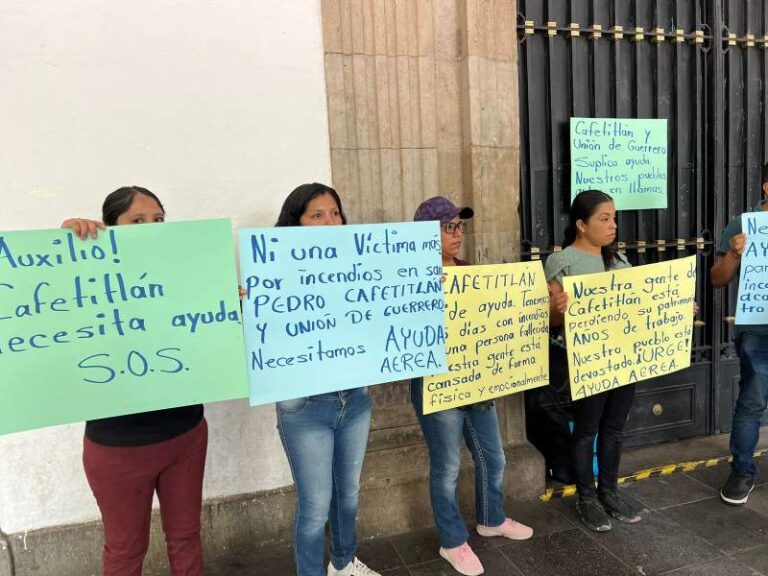 Auxilio!
Cafetitlán
necesita ayuda
S.O.S.
Ni una Víctima más
por incendios en san
PEDRO CAFETITLÁN
y UNIÓN DE GUERRERO
Necesitamos AYUDA
AEREA.
CAFETITLÁN
de ayuda. Tenemos
días con incendios
una persona fallecida
nuestra gente está
cansada de forma
física y emocionalmente
Cafetitlán y
Unión de Guerrero
Suplica ayuda
Nuestros pueblos
en llamas.
Nuestra gente de
Cafetitlán está
perdiendo su patrimonio
AÑOS de trabajo.
Nuestro pueblo está
devastado ¡URGE!
AYUDA AEREA.
Ne
AYU
par